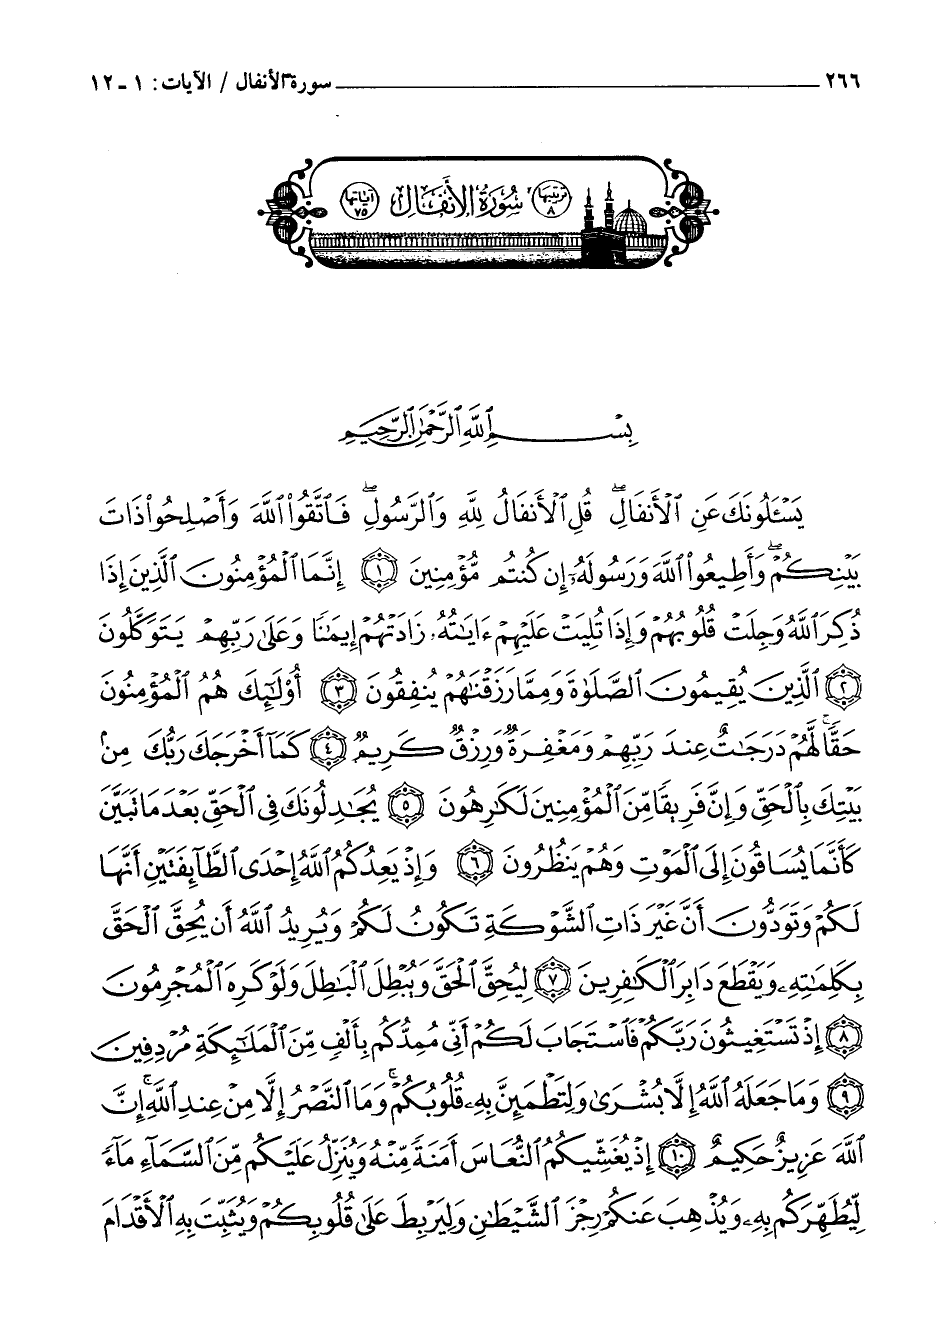 ٢٦٦ سورة الأنفال / الآيات: ١ - ١٢
ترتيبها ٨ سُورَةُ الأَنْفَالِ آياتها ٧٥
بِسْمِ ٱللَّهِ ٱلرَّحْمَٰنِ ٱلرَّحِيمِ
يَسْـَٔلُونَكَ عَنِ ٱلْأَنفَالِۖ قُلِ ٱلْأَنفَالُ لِلَّهِ وَٱلرَّسُولِۖ فَٱتَّقُوا۟ ٱللَّهَ وَأَصْلِحُوا۟ ذَاتَ
بَيْنِكُمْۖ وَأَطِيعُوا۟ ٱللَّهَ وَرَسُولَهُۥٓ إِن كُنتُم مُّؤْمِنِينَ ١ إِنَّمَا ٱلْمُؤْمِنُونَ ٱلَّذِينَ إِذَا
ذُكِرَ ٱللَّهُ وَجِلَتْ قُلُوبُهُمْ وَإِذَا تُلِيَتْ عَلَيْهِمْ ءَايَٰتُهُۥ زَادَتْهُمْ إِيمَٰنًا وَعَلَىٰ رَبِّهِمْ يَتَوَكَّلُونَ
٢ ٱلَّذِينَ يُقِيمُونَ ٱلصَّلَوٰةَ وَمِمَّا رَزَقْنَٰهُمْ يُنفِقُونَ ٣ أُو۟لَٰٓئِكَ هُمُ ٱلْمُؤْمِنُونَ
حَقًّاۚ لَّهُمْ دَرَجَٰتٌ عِندَ رَبِّهِمْ وَمَغْفِرَةٌ وَرِزْقٌ كَرِيمٌ ٤ كَمَآ أَخْرَجَكَ رَبُّكَ مِنۢ
بَيْتِكَ بِٱلْحَقِّ وَإِنَّ فَرِيقًا مِّنَ ٱلْمُؤْمِنِينَ لَكَٰرِهُونَ ٥ يُجَٰدِلُونَكَ فِى ٱلْحَقِّ بَعْدَ مَا تَبَيَّنَ
كَأَنَّمَا يُسَاقُونَ إِلَى ٱلْمَوْتِ وَهُمْ يَنظُرُونَ ٦ وَإِذْ يَعِدُكُمُ ٱللَّهُ إِحْدَى ٱلطَّآئِفَتَيْنِ أَنَّهَا
لَكُمْ وَتَوَدُّونَ أَنَّ غَيْرَ ذَاتِ ٱلشَّوْكَةِ تَكُونُ لَكُمْ وَيُرِيدُ ٱللَّهُ أَن يُحِقَّ ٱلْحَقَّ
بِكَلِمَٰتِهِۦ وَيَقْطَعَ دَابِرَ ٱلْكَٰفِرِينَ ٧ لِيُحِقَّ ٱلْحَقَّ وَيُبْطِلَ ٱلْبَٰطِلَ وَلَوْ كَرِهَ ٱلْمُجْرِمُونَ
٨ إِذْ تَسْتَغِيثُونَ رَبَّكُمْ فَٱسْتَجَابَ لَكُمْ أَنِّى مُمِدُّكُم بِأَلْفٍ مِّنَ ٱلْمَلَٰٓئِكَةِ مُرْدِفِينَ
٩ وَمَا جَعَلَهُ ٱللَّهُ إِلَّا بُشْرَىٰ وَلِتَطْمَئِنَّ بِهِۦ قُلُوبُكُمْۚ وَمَا ٱلنَّصْرُ إِلَّا مِنْ عِندِ ٱللَّهِۚ إِنَّ
ٱللَّهَ عَزِيزٌ حَكِيمٌ ١٠ إِذْ يُغَشِّيكُمُ ٱلنُّعَاسَ أَمَنَةً مِّنْهُ وَيُنَزِّلُ عَلَيْكُم مِّنَ ٱلسَّمَآءِ مَآءً
لِّيُطَهِّرَكُم بِهِۦ وَيُذْهِبَ عَنكُمْ رِجْزَ ٱلشَّيْطَٰنِ وَلِيَرْبِطَ عَلَىٰ قُلُوبِكُمْ وَيُثَبِّتَ بِهِ ٱلْأَقْدَامَ